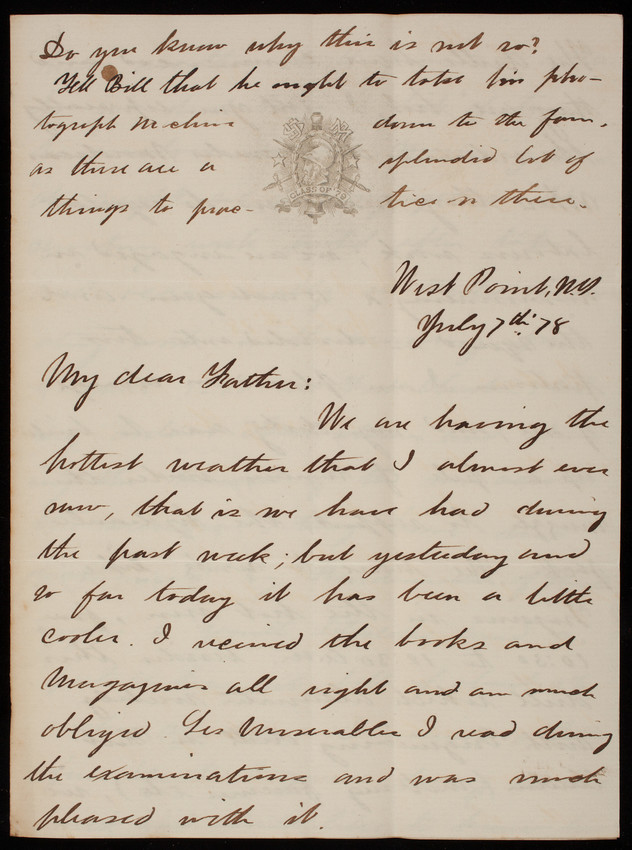 Do you know why this is not so?
Tell Bill that he ought to take his pho-
tograph machine down to the farm,
as there are a splendid lot of
things to prac- tice on there.
CLASS OF '79
West Point, N.Y.
July 7th 78
My dear Father:
We are having the
hottest weather that I almost ever
saw, that is we have had during
the past week; but yesterday and
so far today it has been a little
cooler. I received the books and
Magazines all right and am much
obliged. Les Miserables I read during
the examinations and was much
pleased with it.